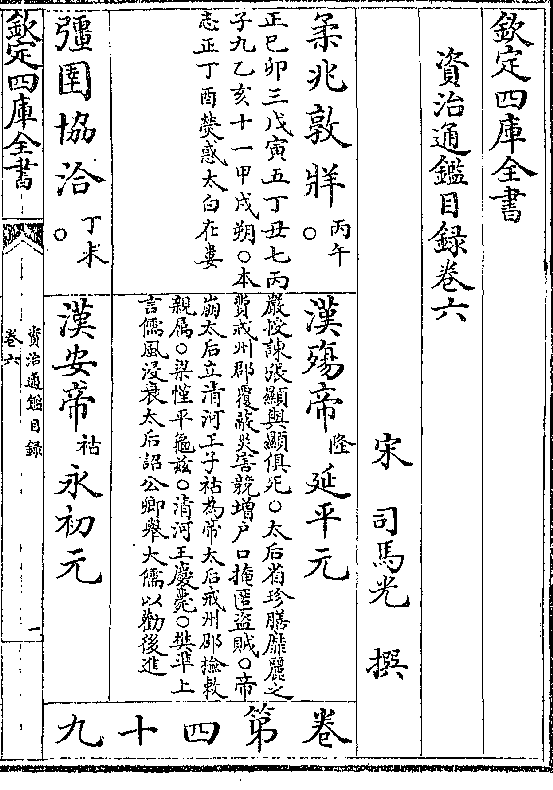 欽定四庫全書
資治通鑑目録卷六
宋 司馬光 撰
柔兆敦牂 丙午 ○
正己卯三戊寅五丁丑七丙
子九乙亥十一甲戌朔○本
志正丁酉熒惑太白在婁
漢殤帝 隆 延平元
嚴授諌張顯與顯俱死○太后省珍膳靡麗之
費戒州郡覆蔽災害競增户口掩匿盜賊○帝
崩太后立清河王子祜為帝太后戒州郡檢敕
親属○梁慬平龜兹○清河王慶薨○樊準上
言儒風浸衰太后詔公卿舉大儒以勸後進
卷第四十九
彊圉協洽 丁未 ○
漢安帝 祜 永初元
欽定四庫全書
資治通鑑目録
卷六
一